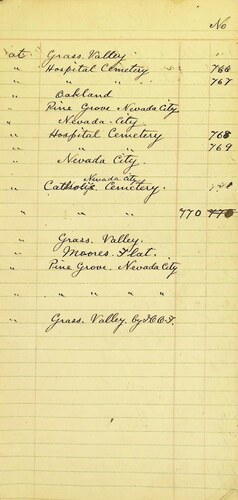 No
at Grass. Valley "
" Hospital Cemetery 766
" " " " 767
" Oakland
" Pine Grove. Nevada City
" Nevada. City.
" Hospital Cemetery 768
" " " 769
" Nevada City.
Nevada City
" Catholic Cemetery.
" " " 770
" Grass. Valley.
" Moores. Flat.
" Pine Grove. Nevada City
" " " " "
" Grass. Valley. by